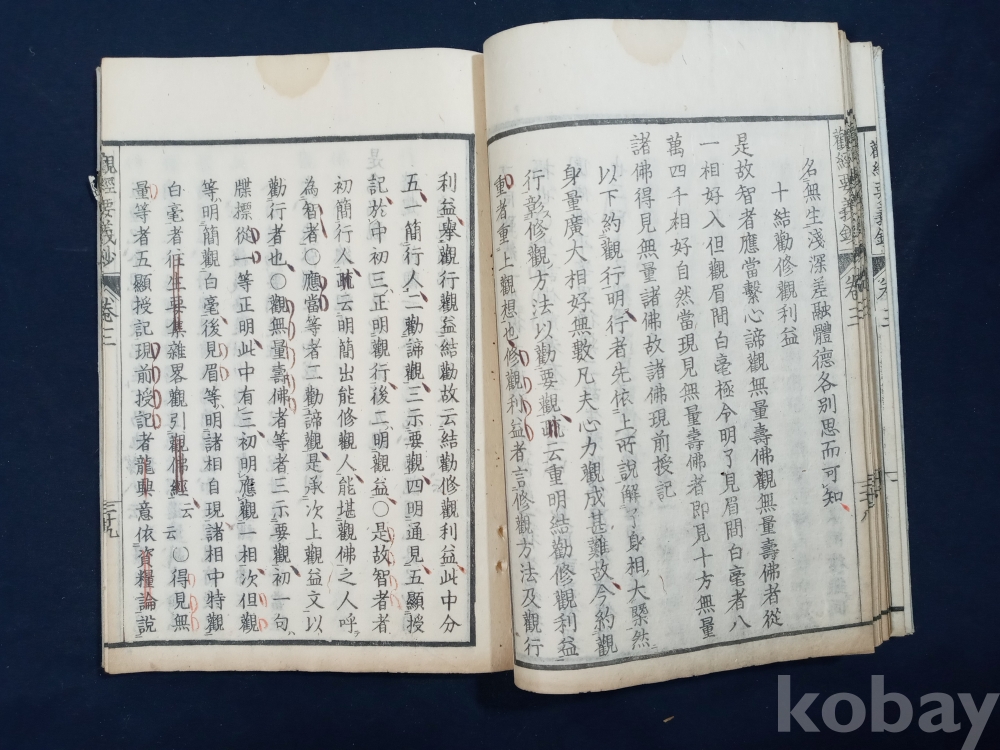 名無生淺深差融體德各別思而可知
十結勸修觀利益
是故智者應當繫心諦觀無量壽佛觀無量壽佛者從
一相好入但觀眉間白毫極令明了見眉間白毫者八
萬四千相好自然當現見無量壽佛者即見十方無量
諸佛得見無量諸佛故諸佛現前授記
以下約觀行明行者先依上所說解了身相大槩然
身量廣大相好無數凡夫心力觀成甚難故今約觀
行彰修觀方法以勸要觀疏云重明結勸修觀利益
重者重上觀想也修觀利益者言修觀方法及觀行
利益擧觀行觀益結勸故云結勸修觀利益此中分
五一簡行人二勸諦觀三示要觀四明通見五顯授
記於中初三正明觀行後二明觀益〇是故智者者
初簡行人疏云明簡出能修觀人能堪觀佛之人呼
為智者〇應當等者二勸諦觀是承次上觀益文以
勸行者也〇觀無量壽佛者等者三示要觀初一句
牒標從一等正明此中有三初明應觀一相次但觀
等明簡觀白毫後見眉等明諸相自現諸相中特觀
白毫者往生要集雜畧觀引觀佛經云云〇得見無
量等者五顯授記現前授記者龍興意依資糧論說
觀經要義鈔
卷三
三十九
kobay